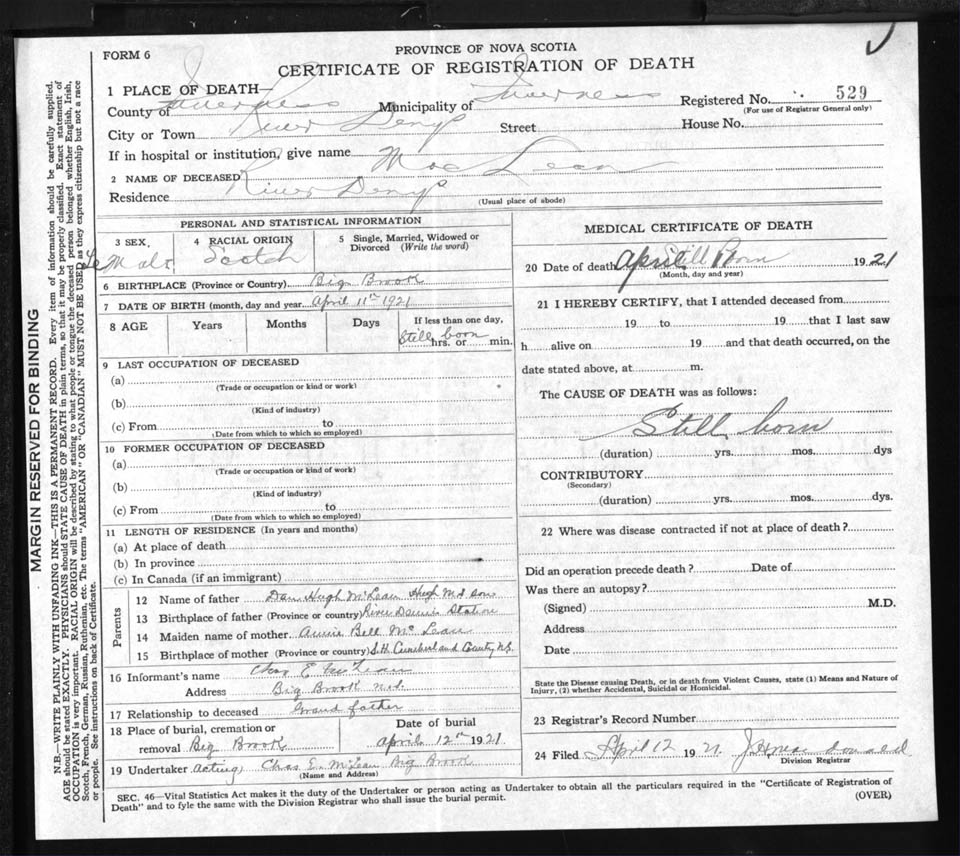 FORM 6
PROVINCE OF NOVA SCOTIA
CERTIFICATE OF REGISTRATION OF DEATH
1 PLACE OF DEATH—
County of Inverness Municipality of Inverness Registered No. 529
(For use of Registrar General only)
City or Town River Denys Street House No.
If in hospital or institution, give name
2 NAME OF DECEASED Mac Lean
Residence River Denys
(Usual place of abode)
PERSONAL AND STATISTICAL INFORMATION
3 SEX. 4 RACIAL ORIGIN 5 Single, Married, Widowed or
Divorced (Write the word)
Fe Male Scotch
6 BIRTHPLACE (Province or Country) Big Brook
7 DATE OF BIRTH (month, day and year) April 11th 1921
8 AGE Years Months Days If less than one day,
Still born
hrs. or min.
9 LAST OCCUPATION OF DECEASED
(a)
(Trade or occupation or kind or work)
(b)
(Kind of industry)
(c) From to
(Date from which to which so employed)
10 FORMER OCCUPATION OF DECEASED
(a)
(Trade or occupation or kind of work)
(b)
(Kind of industry)
(c) From to
(Date from which to which so employed)
11 LENGTH OF RESIDENCE (In years and months)
(a) At place of death
(b) In province
(c) In Canada (if an immigrant)
Parents
12 Name of father Dan Hugh McLean Hugh son
13 Birthplace of father (Province or country) River Dennis Station
14 Maiden name of mother Annie Bell Mc Lean
15 Birthplace of mother (Province or country) S.H. Cumberland County N.S.
16 Informant's name Chas E McLean
Address Big Brook N.S.
17 Relationship to deceased Grand father
18 Place of burial, cremation or Date of burial
removal Big Brook April 12th 1921
19 Undertaker acting Chas E McLean Big Brook
(Name and Address)
MEDICAL CERTIFICATE OF DEATH
20 Date of death April Still Born 1921
(Month, day and year)
21 I HEREBY CERTIFY, that I attended deceased from
19 to 19 that I last saw
h alive on 19 and that death occurred, on the
date stated above, at m.
The CAUSE OF DEATH was as follows:
Still born
(duration) yrs. mos. dys
CONTRIBUTORY
(Secondary)
(duration) yrs. mos. dys.
22 Where was disease contracted if not at place of death?
Did an operation precede death? Date of
Was there an autopsy?
(Signed) M.D.
Address
Date
State the Disease causing Death, or in death from Violent Causes, state (1) Means and Nature of
Injury, (2) whether Accidental, Suicidal or Homicidal.
23 Registrar's Record Number
24 Filed April 12 1921
Division Registrar
SEC. 46—Vital Statistics Act makes it the duty of the Undertaker or person acting as Undertaker to obtain all the particulars required in the "Certificate of Registration of
Death" and to fyle the same with the Division Registrar who shall issue the burial permit.
(OVER)
MARGIN RESERVED FOR BINDING
N.B.—WRITE PLAINLY WITH UNFADING INK—THIS IS A PERMANENT RECORD. Every item of information should be carefully supplied.
AGE should be stated EXACTLY. PHYSICIANS should STATE CAUSE OF DEATH in plain terms, so that it may be properly classified. Exact statement of
OCCUPATION is very important. RACIAL ORIGIN will be described by stating to what people or tongue the deceased person belonged whether English, Irish,
Scotch, French, German, Russian, Ruthenian, etc. The terms "AMERICAN" OR "CANADIAN" MUST NOT BE USED as they express citizenship but not a race
or people. See instructions on back of Certificate.